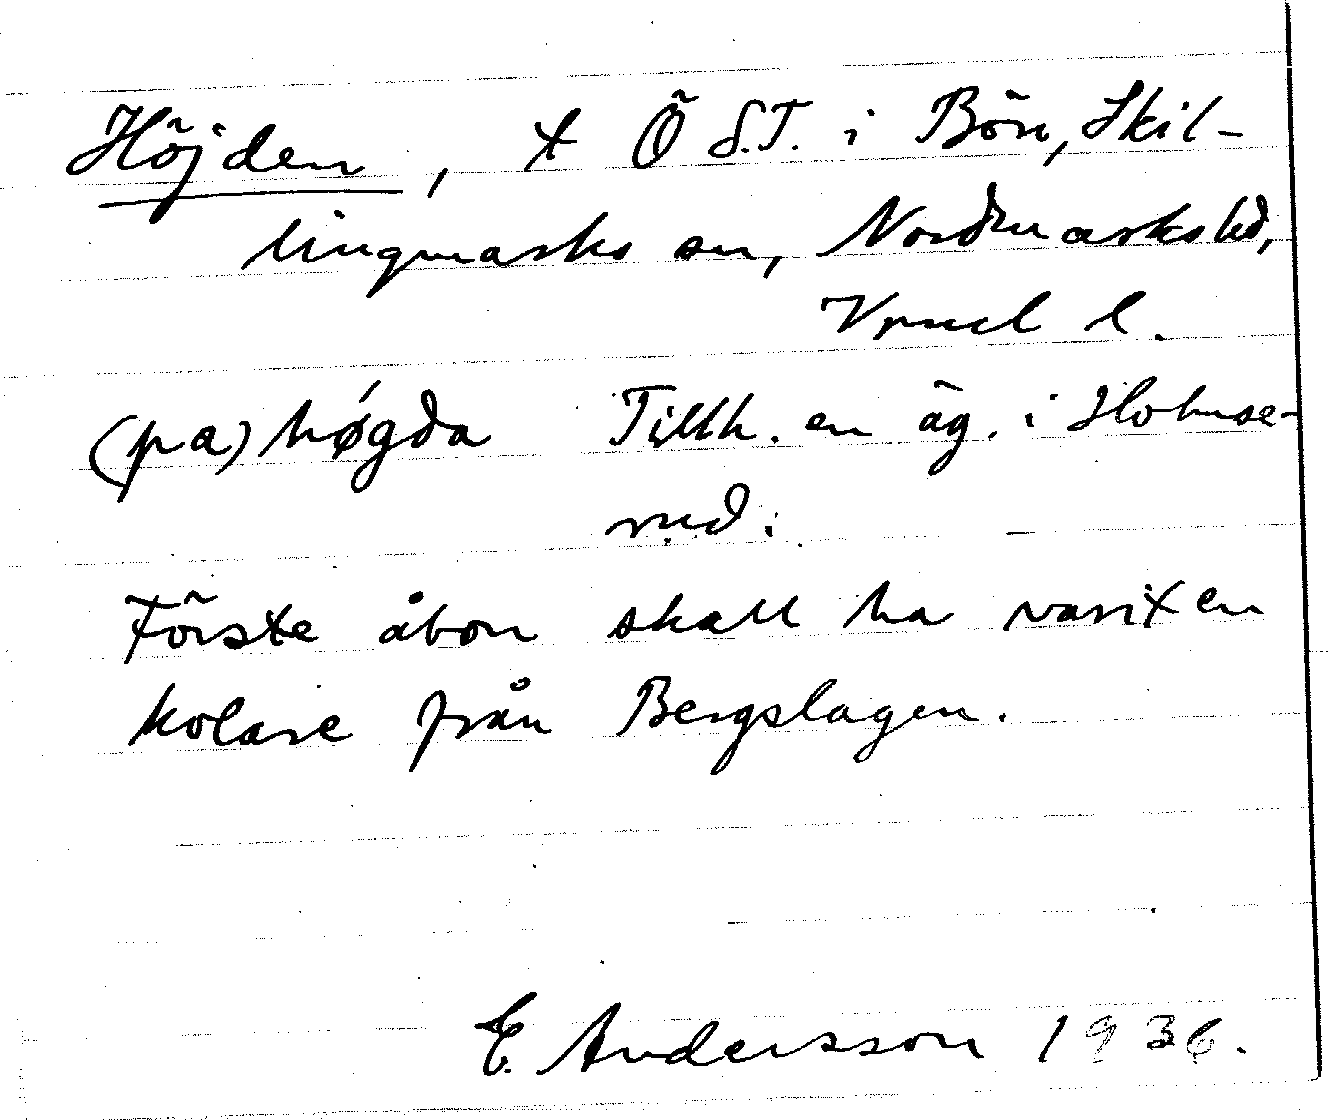 Höjden, t Ö S.T. i Bön, Skil-
lingmarks sn, Nordmarks hd,
Vrml l.
(pa) høgda Tillh. en äg. i Slobuse-
rud.
Förste åbon skall ha varit en
kolare från Bergslagen.
E. Andersson 1936.